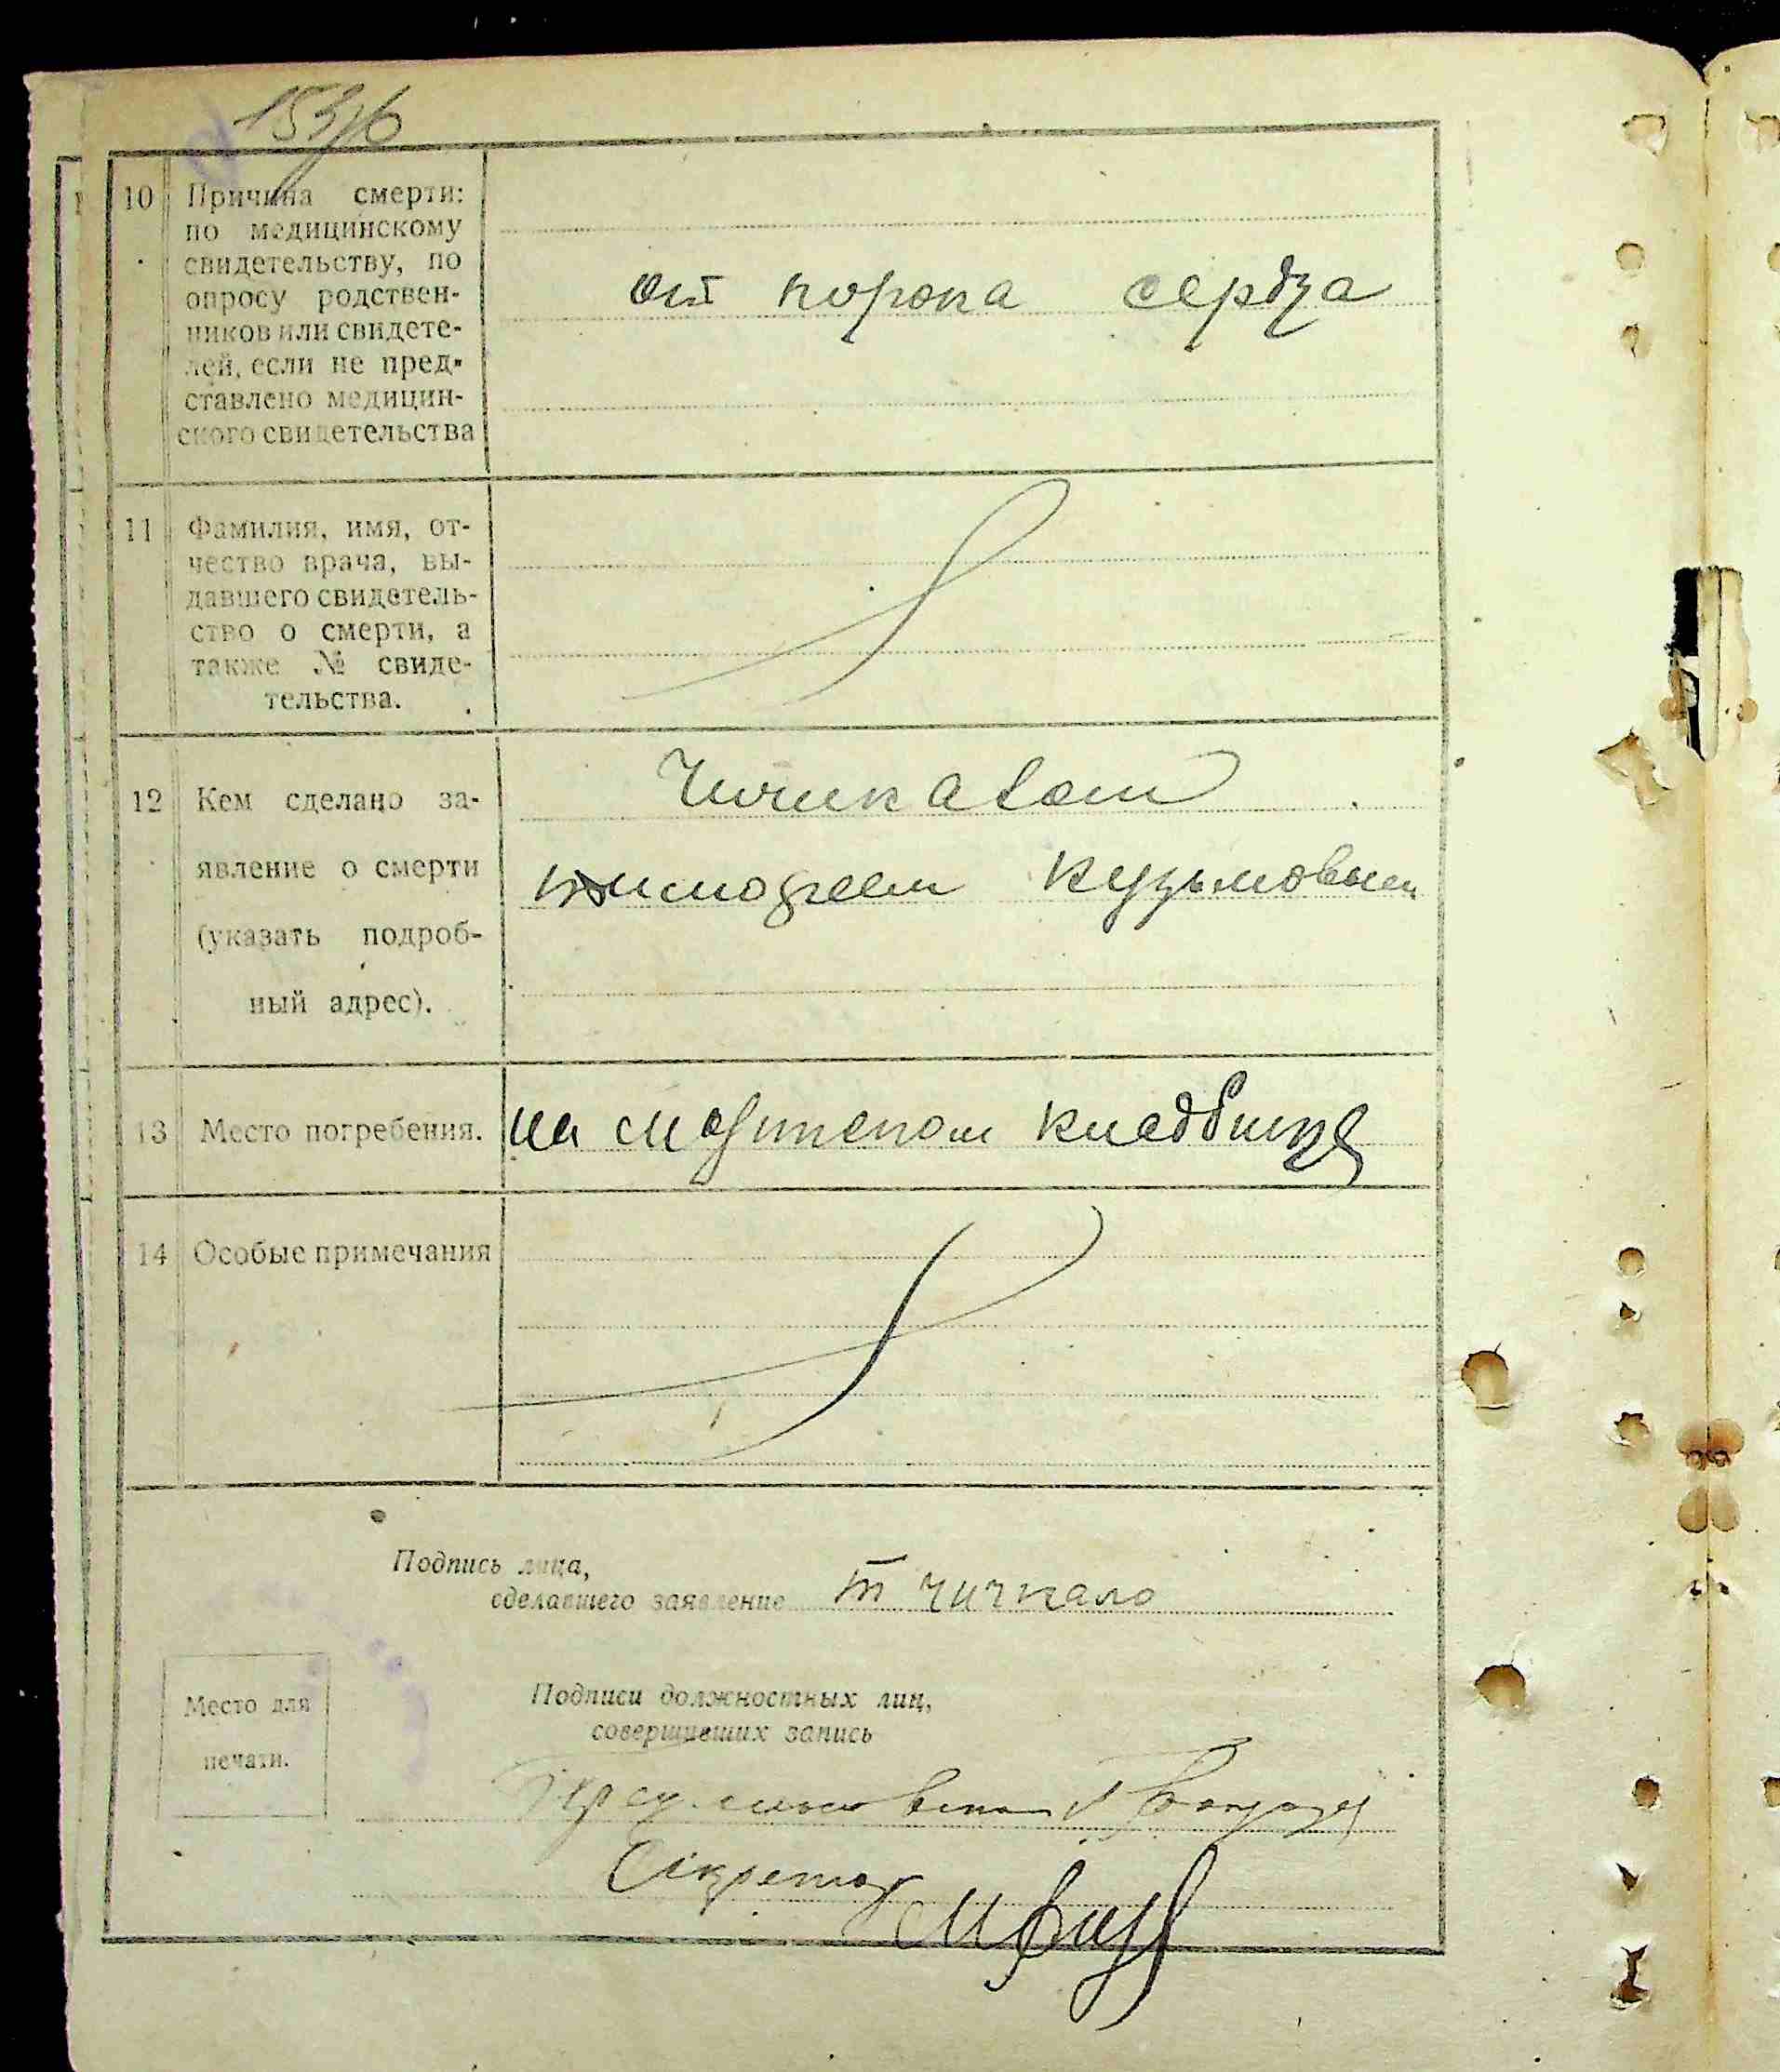 10 Причина смерти:
по медицинскому
свидетельству, по
опросу родствен-
ников или свидете-
лей, если не пред-
ставлено медицин-
ского свидетельства
от порока сердза
11 Фамилия, имя, от-
чество врача, вы-
давшего свидетель-
ство о смерти, а
также № свиде-
тельства.
12 Кем сделано за-
явление о смерти
(указать подроб-
ный адрес).
Чичикалом
тимофеем Кузьмовым
13 Место погребения.
на кладбище
14 Особые примечания
Подпись лица,
сделавшего заявление т чичкало
Место для
печати.
Подписи должностных лиц,
совершивших запись
Секретар